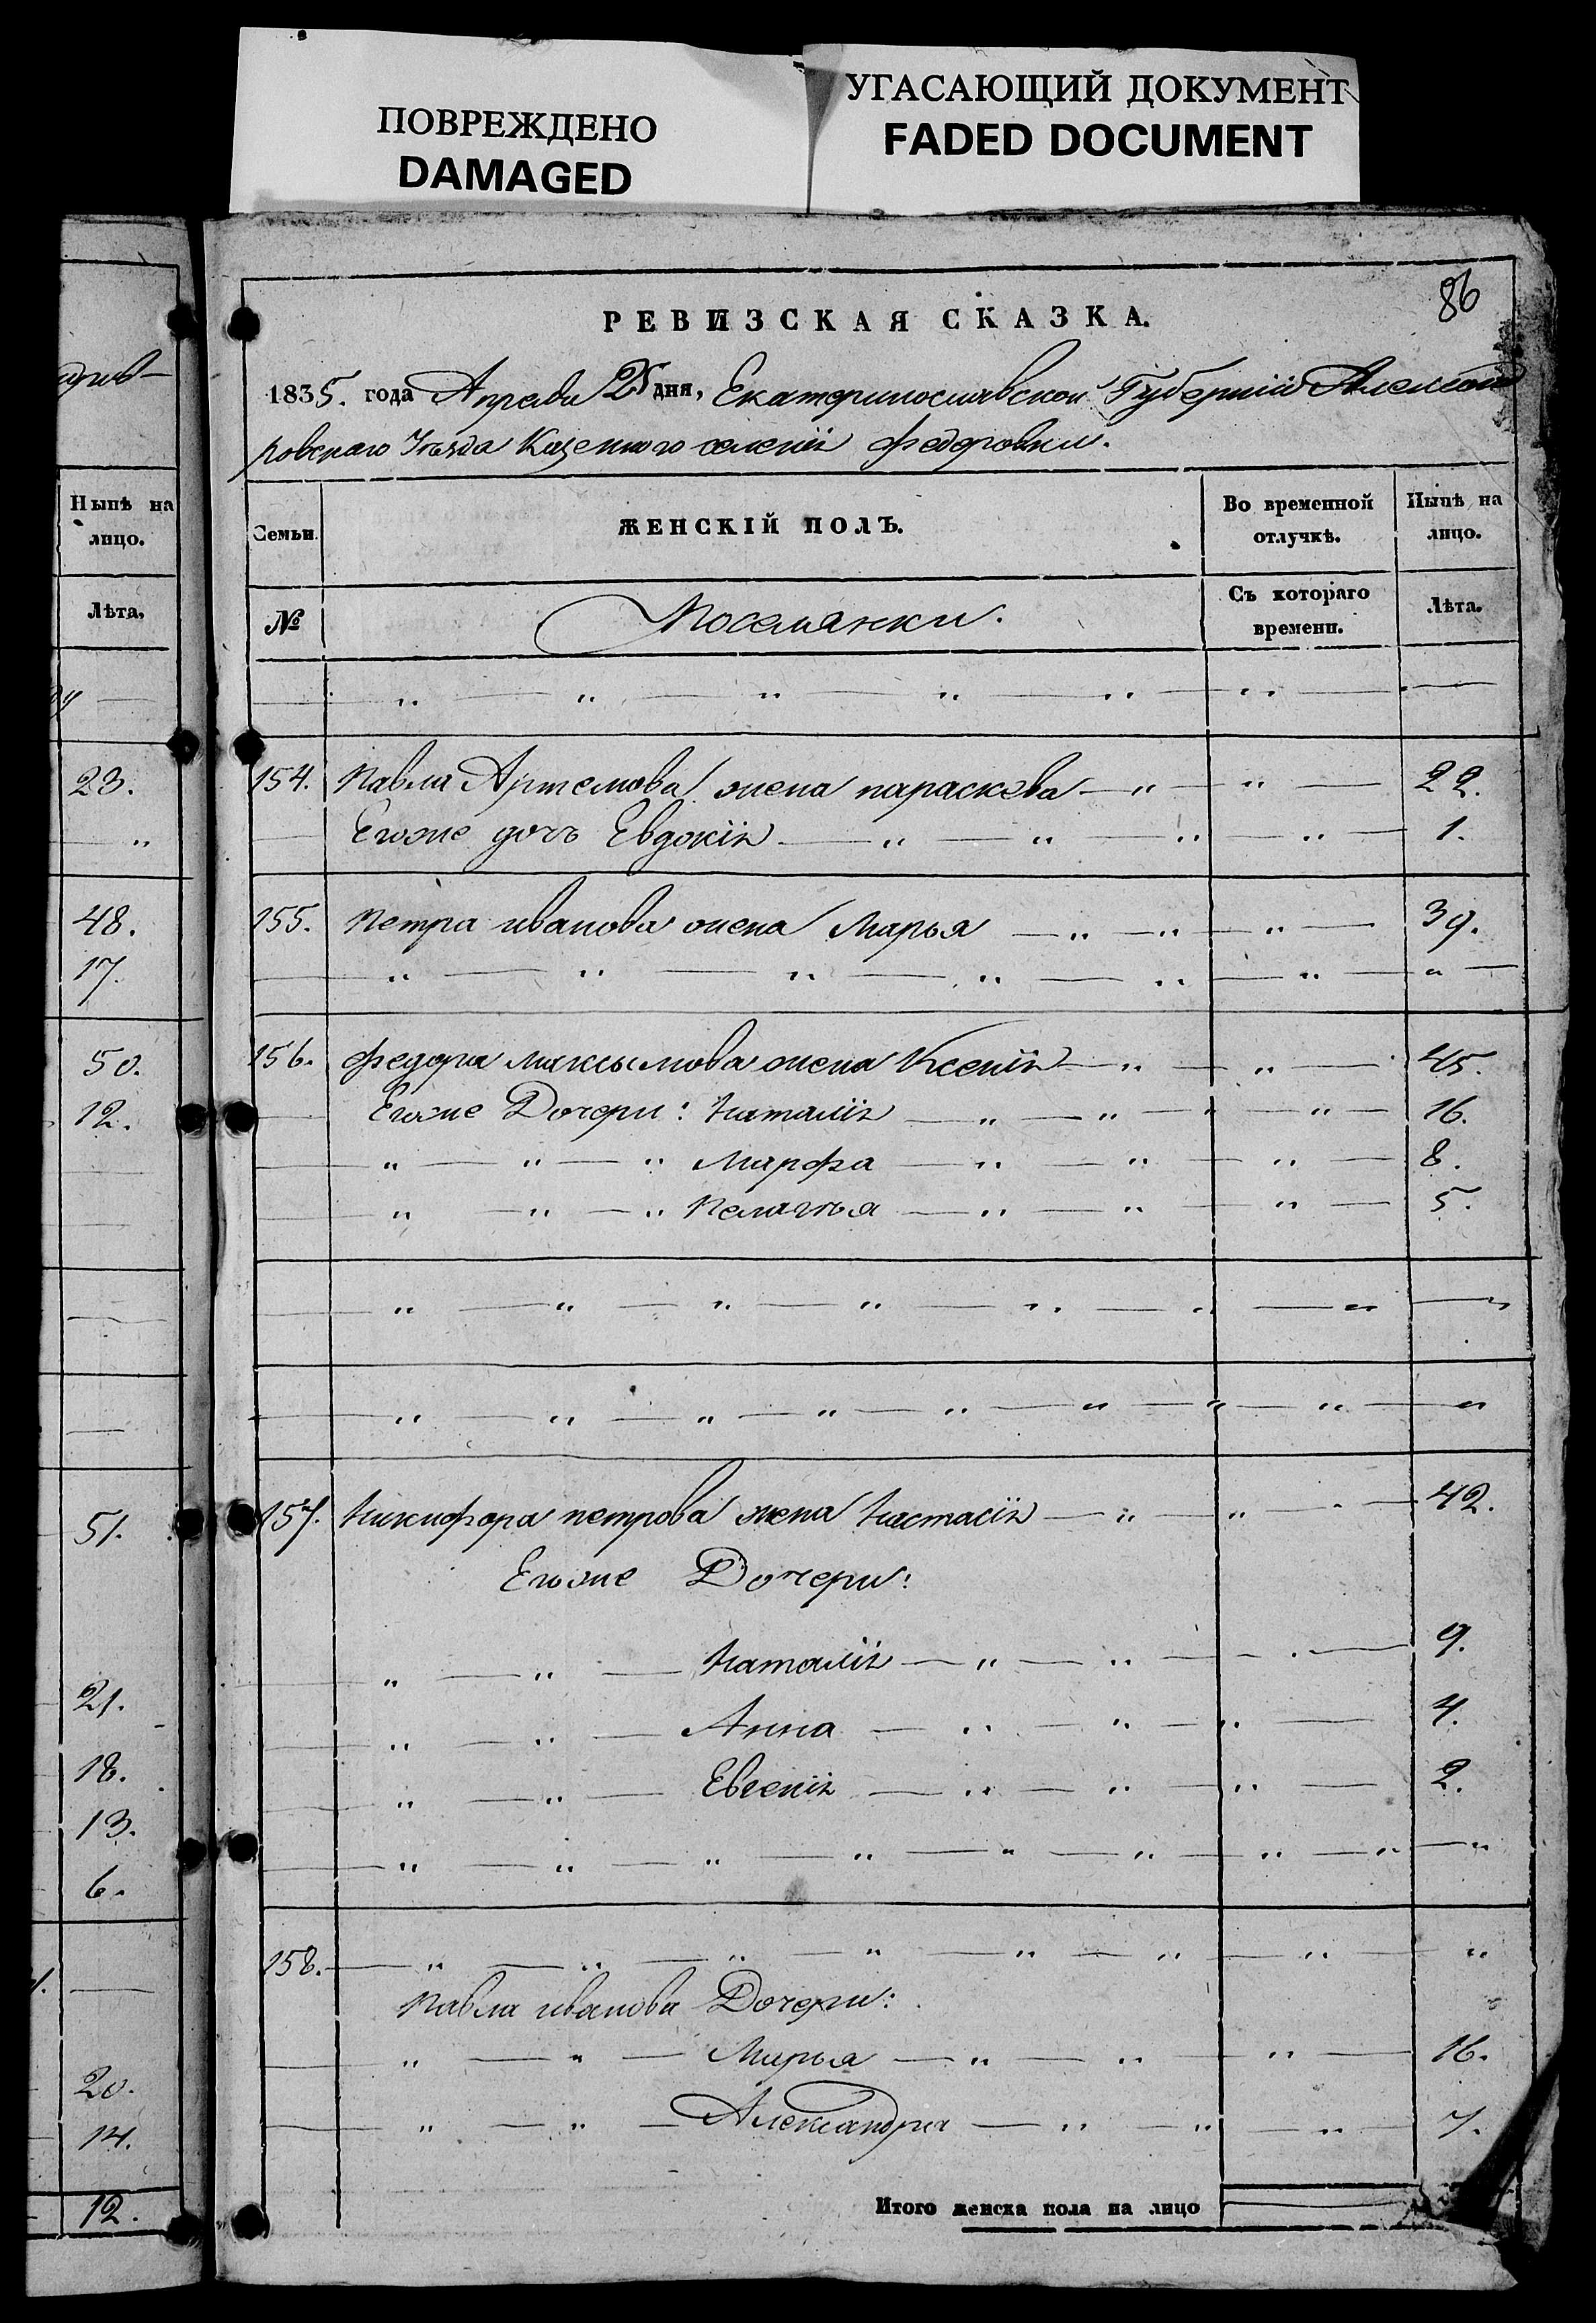 ПОВРЕЖДЕНО
DAMAGED
УГАСАЮЩИЙ ДОКУМЕНТ
FADED DOCUMENT
Нынѣ на
лицо.
Лѣта,
23.
48.
17.
50.
12.
51.
21.
18.
13.
6.
20.
14.
12.
86
РЕВИЗСКАЯ СКАЗКА.
1835. года Апреля 25 дня, Екатеринославской Губерніи Алексан
ровскаго Уѣзда Казенного селенія Федоровки.
Семьи. ЖЕНСКІЙ ПОЛЪ. Во временной отлучкѣ. Нынѣ на лицо.
№ Поселянки. Съ котораго времени. Лѣта.
" " " " " "
154. Павла Артемова жена параскева " " 22.
Егоже дочь Евдокія " " " " 1.
155. Петра иванова жена Марья " " " 39.
" " " " " " "
156. Федора максымова жена Ксенія " " 45.
Егоже Дочери: Наталія " " " " 16.
" " " Марфа " " " 8.
" " " Пелагѣя " " " 5.
" " " " " " " "
" " " " " " " " "
157. Никифора петрова жена Настасія " " 42.
Егоже Дочери:
" " Наталія " " 9.
" " Анна " " " 4.
" " Евгенія " " " 2.
" " " " " " " " "
158. " " " " " " " "
Павла иванова Дочери:
" " Марья " " " 16.
" " Александра " " " 7.
Итого женска пола на лицо